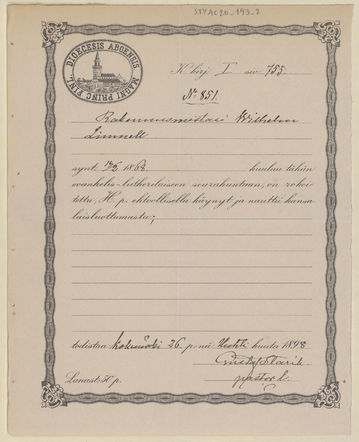 DIOECESIS ABOENSIS MAGNI PRINC. FINL.
K kirj I siv 755.
No 851
Rakennusmestari Wilhelm
Linnell
synt. 1868 kuuluu tähän
evankelis-lutherilaiseen seurakuntaan, on rokoi
tettu, H. p. ehtoollisella käynyt ja nauttii kansa
laisluottamusta;
todistaa 26 p:nä Huhti kuuta 1898
pastor
Lunast. H p.